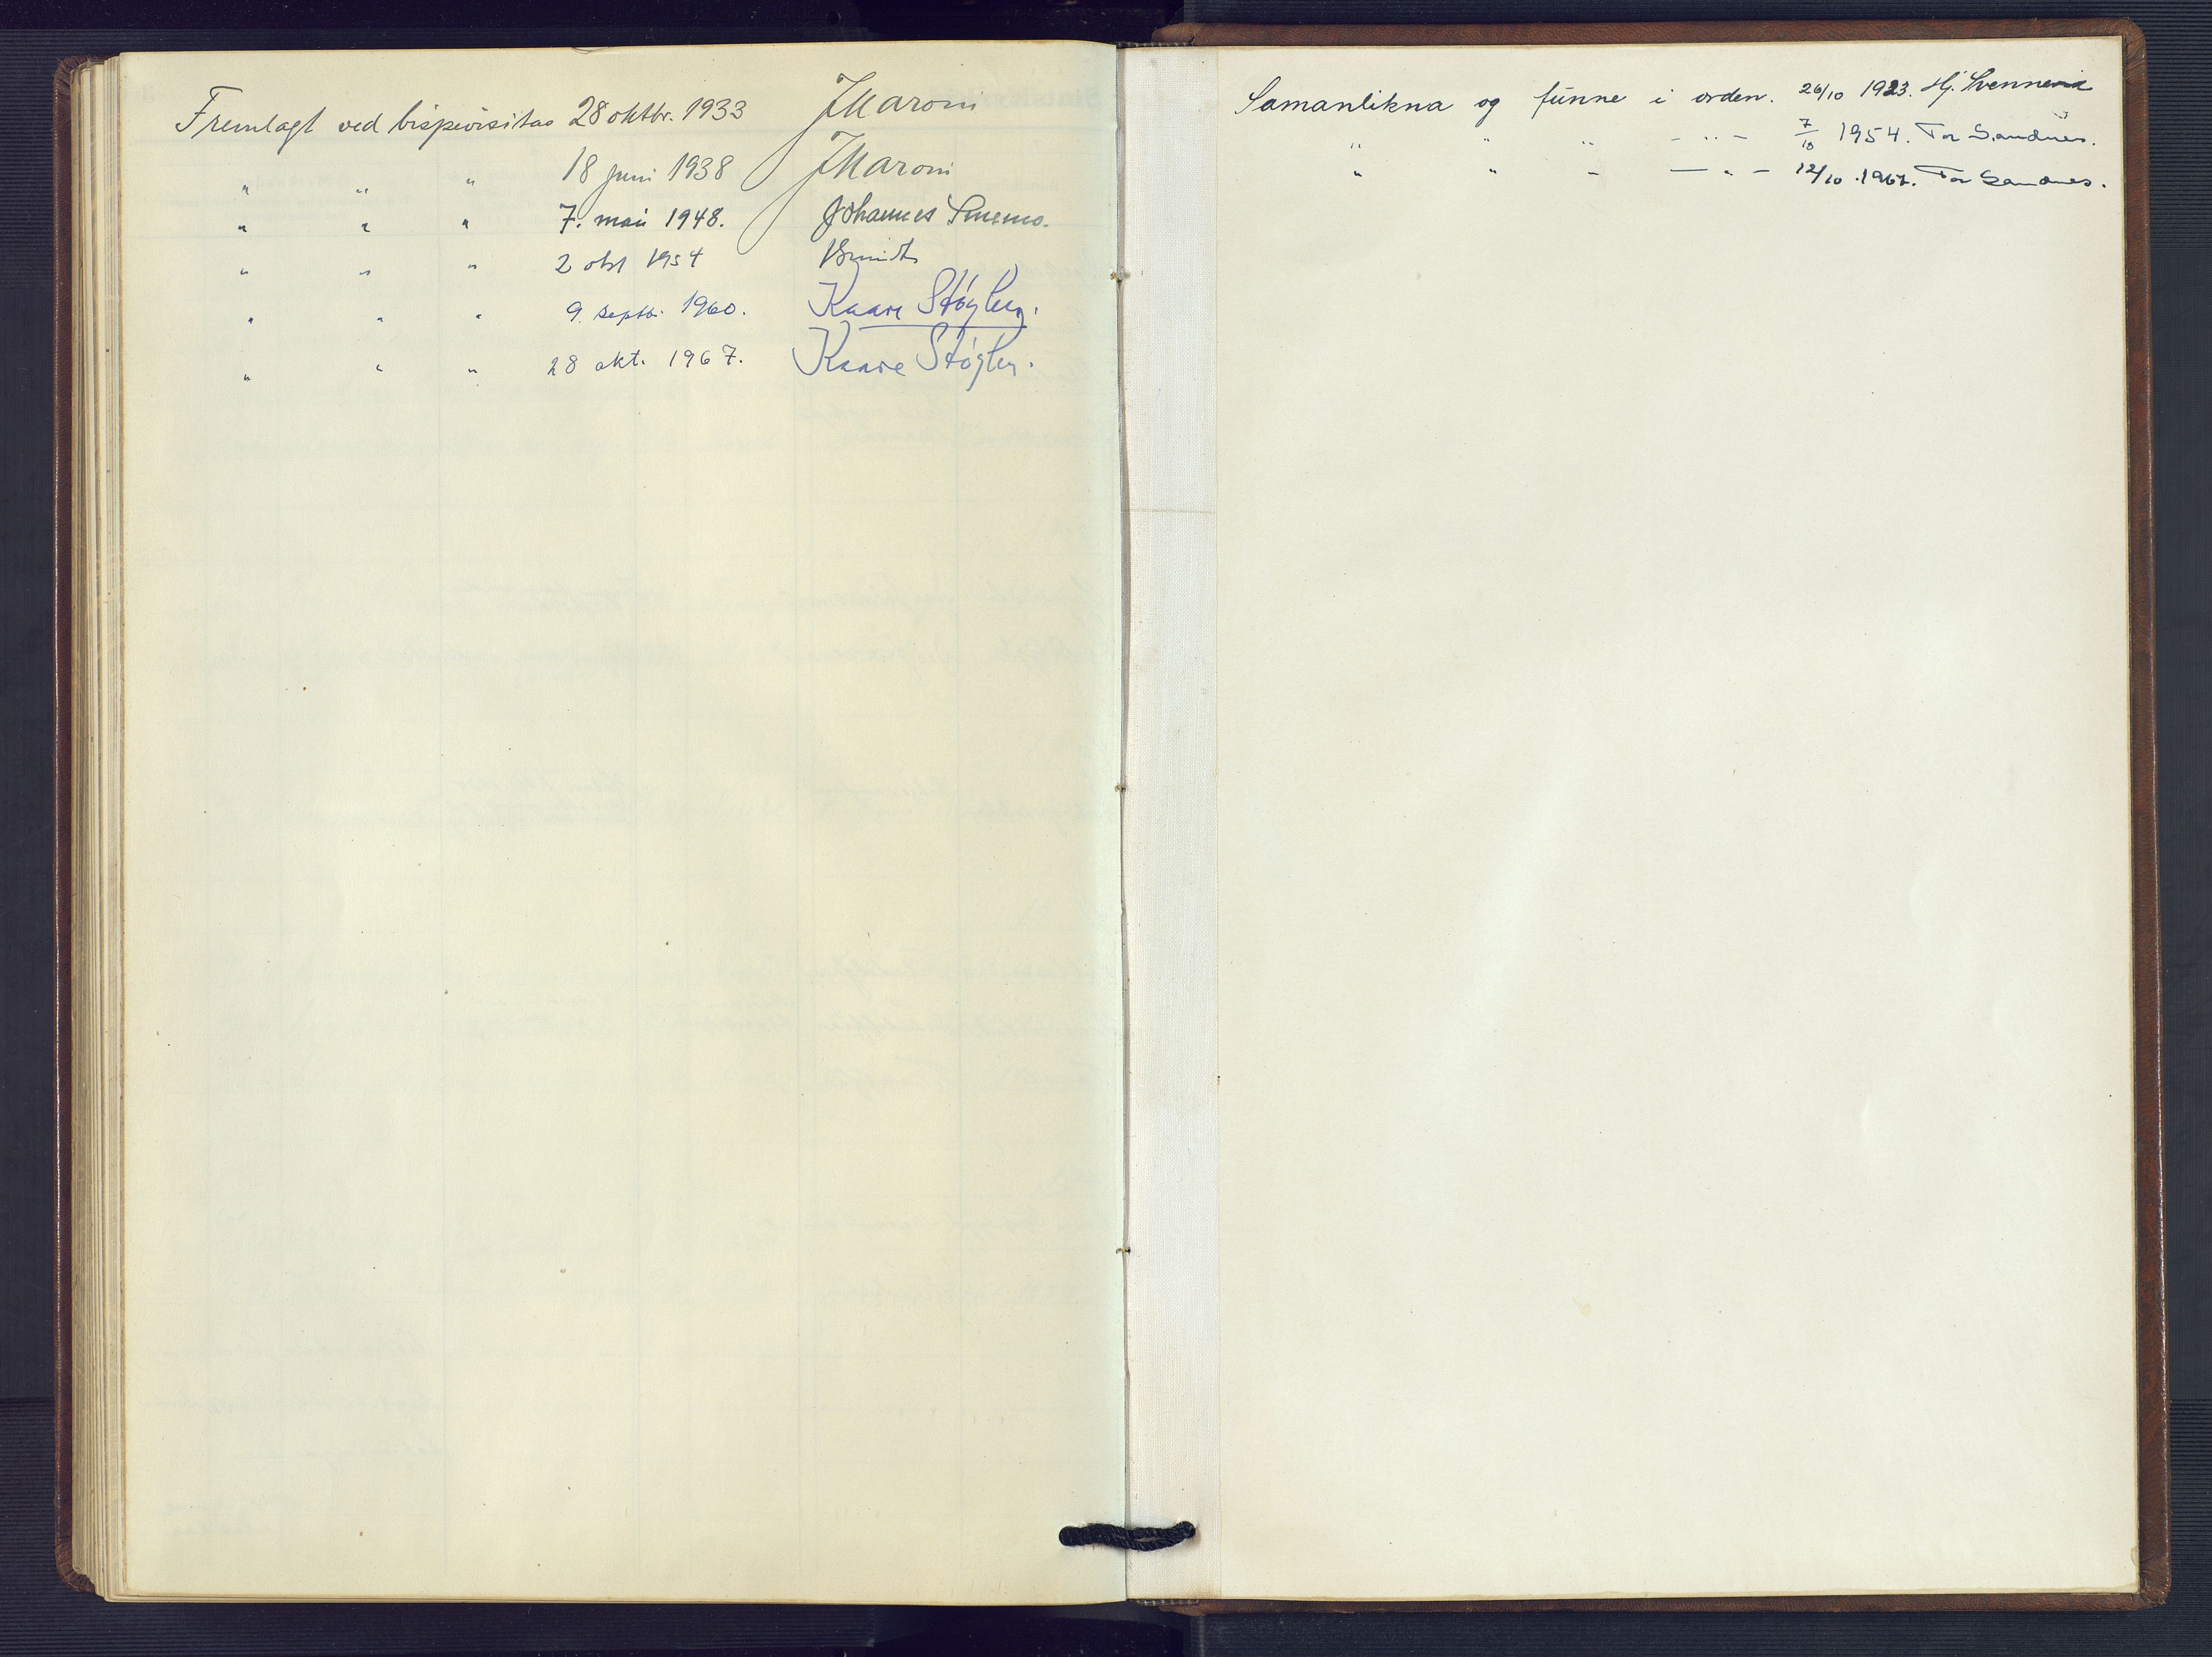 Fremlagt ved bispevisitas 28 oktbr. 1933 JMaroni
" " " 18 juni 1938 JMaroni
" " " 7. mai 1948. Johannes Smemo.
" " " 2 okt 1954
" " " 9. septbr. 1960. Kaare Støylen.
" " " 28 okt. 1967. Kaare Støylen.
Samanlikna og funne i orden. 26/10 1923. Hj. Svennevik
" " " - " - 7/10 1954. Tor Sandnes.
" " " - " - 12/10 1967. Tor Sandnes.